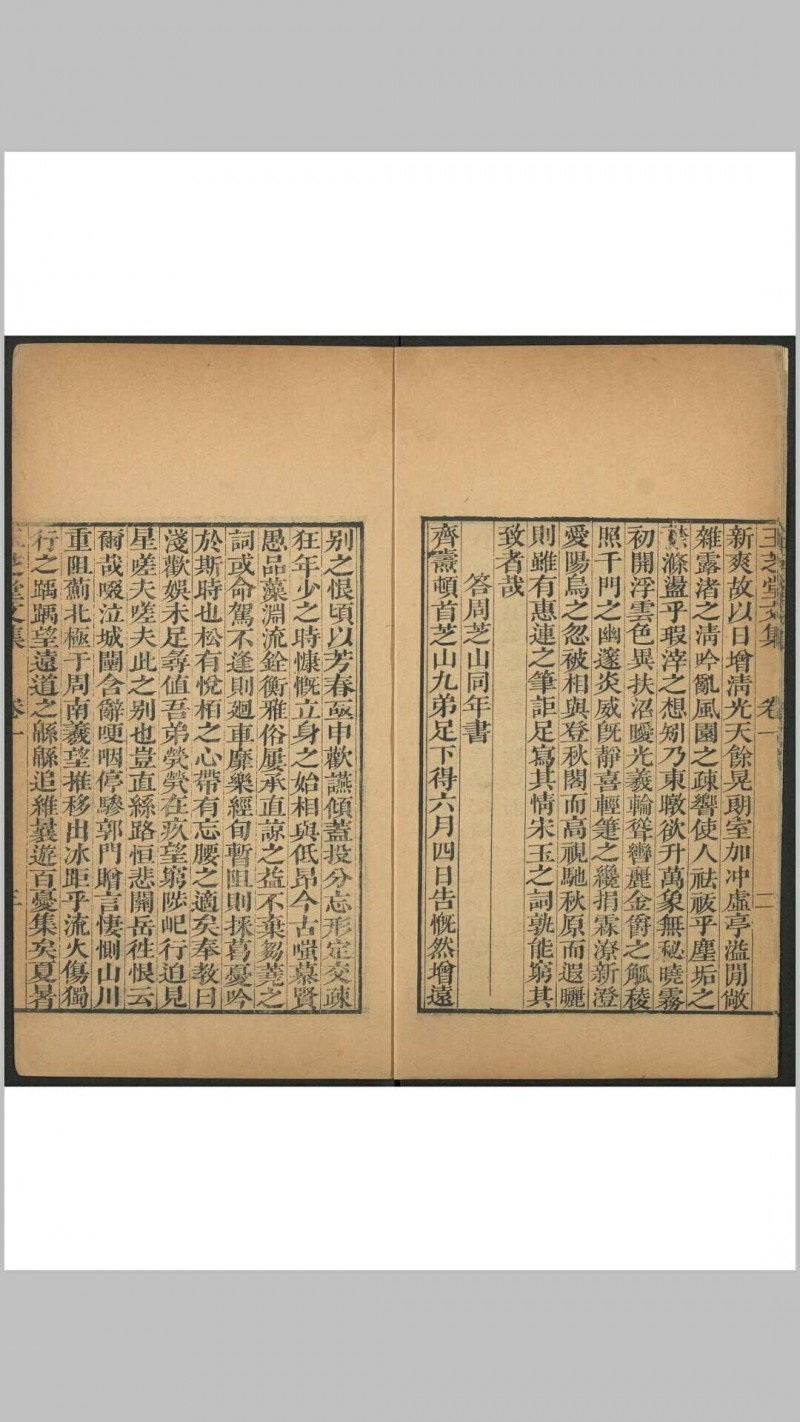 新爽故以日增清光天餘晃朗室加冲虛亭溢閒敞
雜露渚之清吟亂風園之疎響使人祛祓乎塵垢之
滌盪乎瑕滓之想矧乃東暾欲升萬象無秘曉霧
初開浮雲色異扶沼曖光羲輪聳轡麗金爵之觚稜
照千門之幽邃炎威旣靜喜輕箑之纔捐霖潦新澄
愛陽烏之忽被相與登秋閣而高視馳秋原而遐矖
則雖有惠連之筆詎足寫其情宋玉之詞孰能窮其
致者哉
答周芝山同年書
齊燾頓首芝山九弟足下得六月四日吿慨然增遠
王芝堂文集 卷一 二
别之恨頃以芳春亟申歡讌傾蓋投分忘形定交疎
狂年少之時慷慨立身之始相與低昂今古嗤慕賢
愚品藻淵流銓衡雅俗屢承直諒之益不棄芻蕘之
詞或命駕不逢則廻車靡樂經旬暫阻則採葛憂吟
於斯時也松有悅栢之心帶有忘腰之適矣奉教日
淺歡娛未足尋値吾弟煢煢在疚望窮陟屺行迫見
星嗟夫嗟夫此之别也豈直絲路恒悲關岳徃恨云
爾哉啜泣城闉含辭哽咽停驂郭門贈言悽惻山川
重阻薊北極于周南羲望推移出冰距乎流火傷獨
行之踽踽望遠道之緜緜追維曩遊百憂集矣夏暑